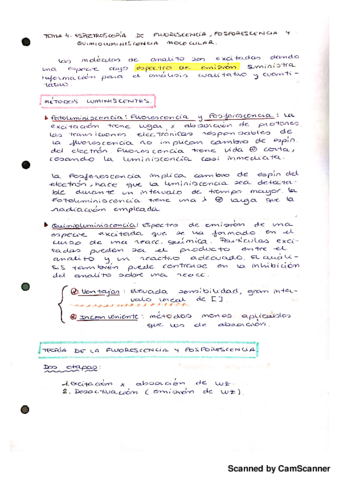 TEMA 4: ESPECTROSCOPÍA DE FLUORESCENCIA, FOSFORESCENCIA Y
QUIMIOLUMINISCENCIA MOLECULAR.
Las moléculas de analito son excitadas, dando
una especie cuyo espectro de emisión suministra
información para el análisis cualitativo y cuanti-
tativo.
MÉTODOS LUMINISCENTES.
Fotoluminiscencia: Fluorescencia y Fosforescencia: La
excitación tiene lugar x absorción de fotones
Las transiciones electrónicas responsables de
la fluorescencia no implican cambio de espín
del electrón. Fluorescencia tiene vida corta,
cesando la luminiscencia casi inmediata.
La fosforescencia implica cambio de espín del
electrón, hace que la luminiscencia sea detecta-
ble durante un intervalo de tiempo mayor. La
fotoluminiscencia tiene una λ ⊕ larga que la
radiación empleada.
Quimioluminiscencia: Espectro de emisión de una
especie excitada que se ha formado en el
curso de una reacc. química. Partículas exci-
tadas pueden ser el producto entre el
analito y un reactivo adecuado. El análi-
sis también puede centrarse en la inhibición
del analito sobre una reacc.
Ventajas: Elevada sensibilidad, gran inter-
valo lineal de []
Inconveniente: métodos menos aplicables
que los de absorción.
TEORÍA DE LA FLUORESCENCIA Y FOSFORESCENCIA.
Dos etapas:
1. Excitación x absorción de luz.
2. Desactivación (emisión de luz).
Scanned by CamScanner